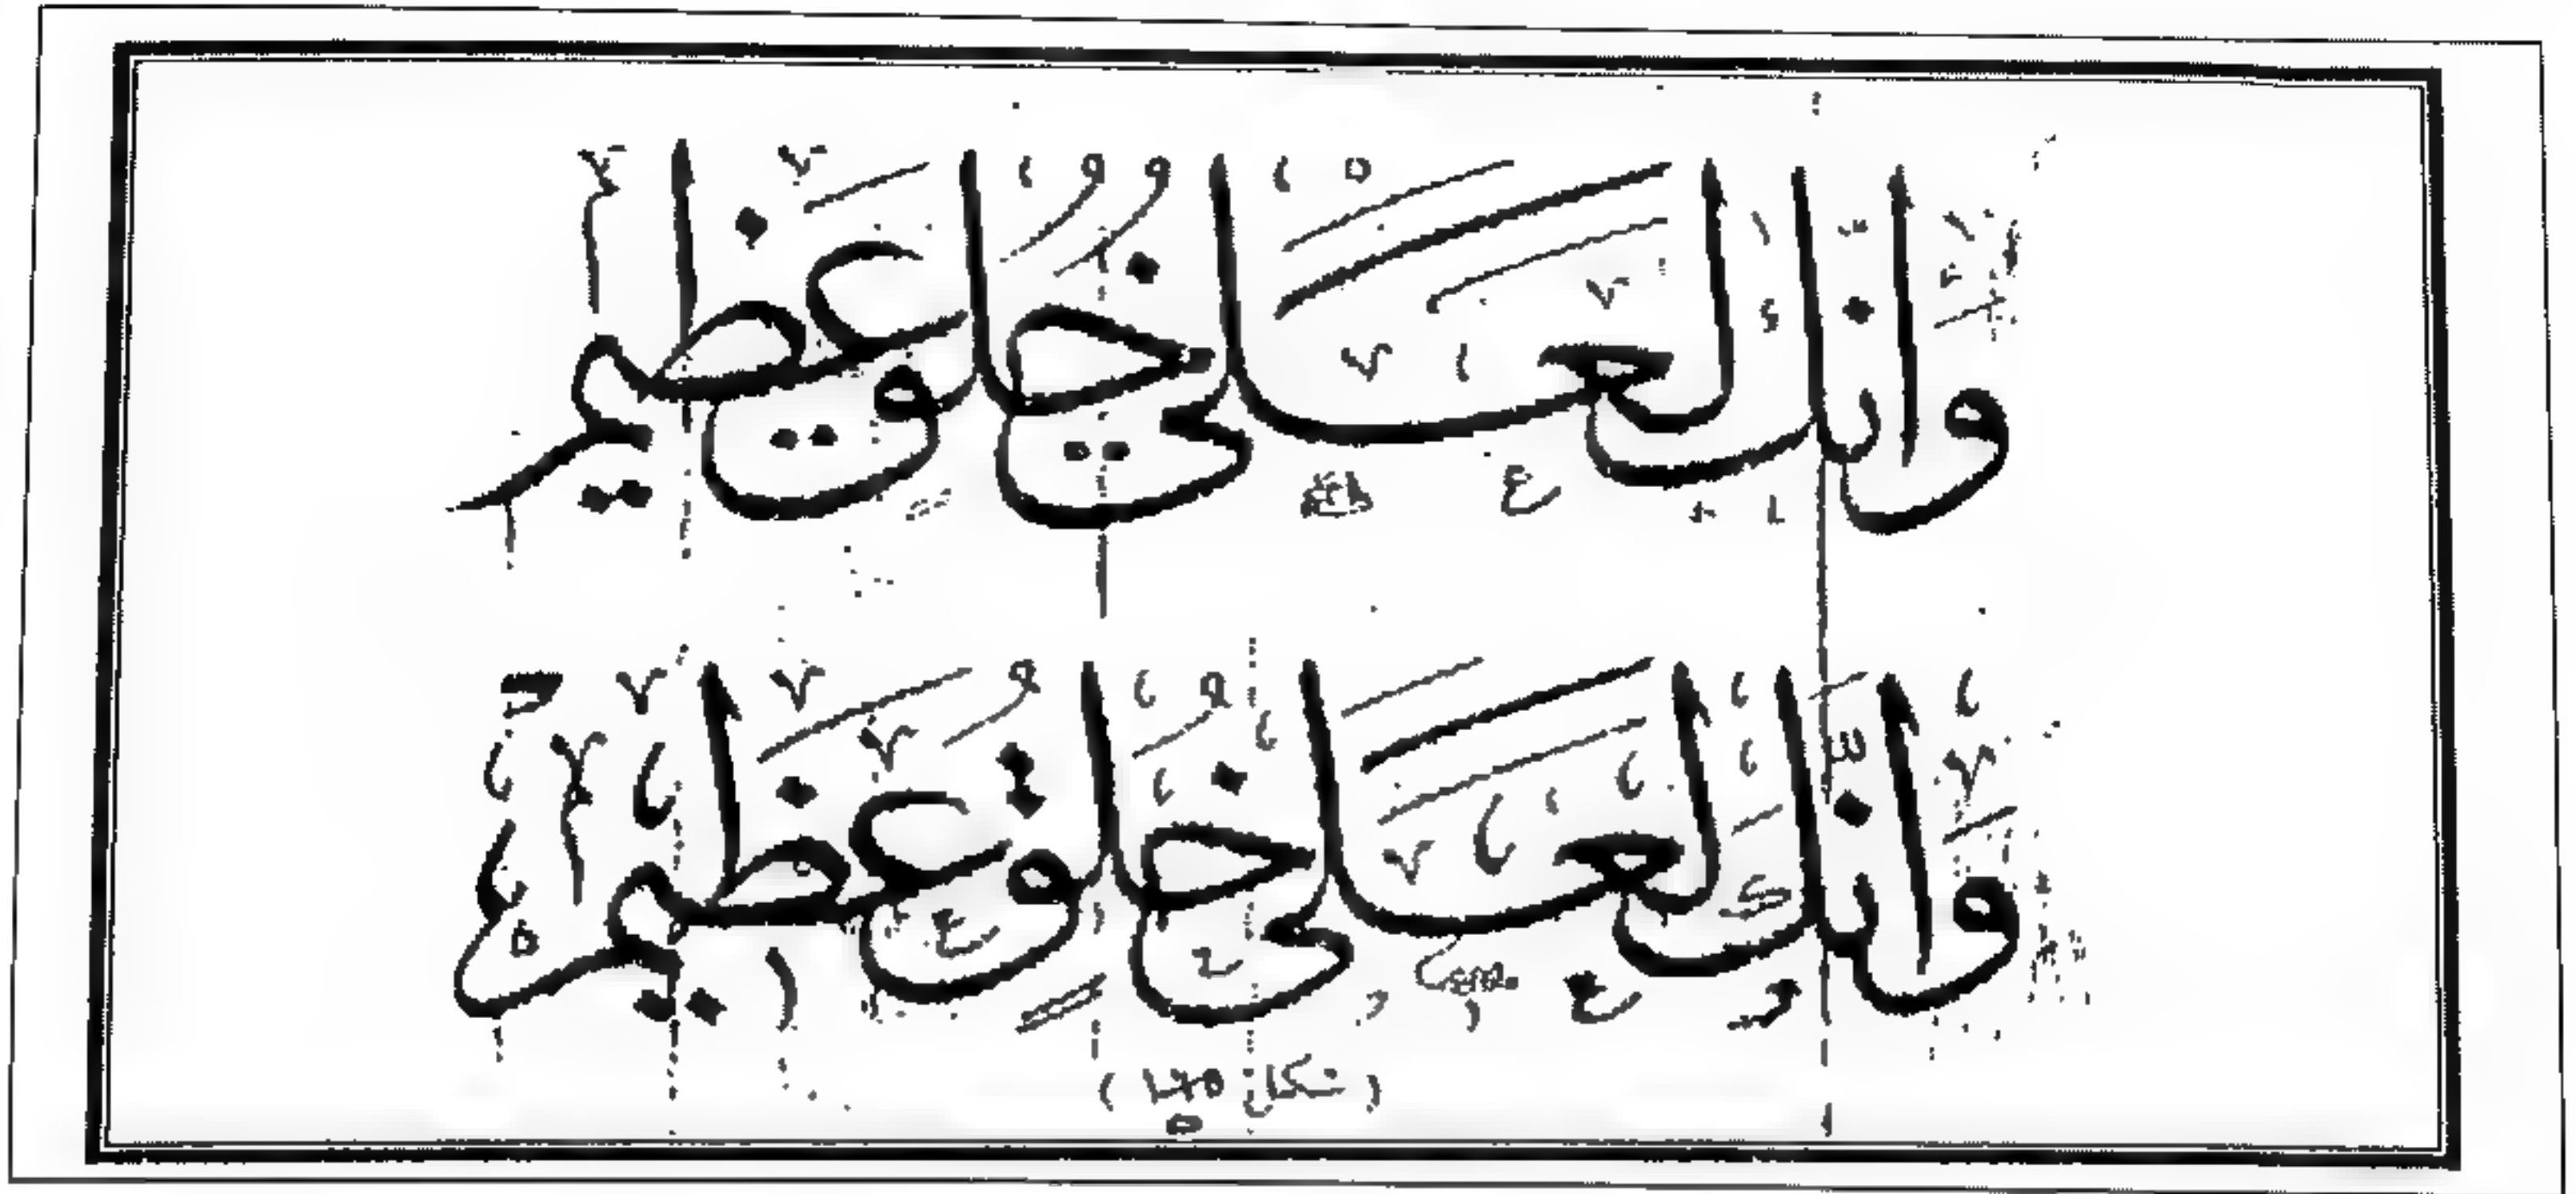 وانك لعلى خلق عظيم
وانك لعلى خلق عظيم
(شكل ١٦٥)